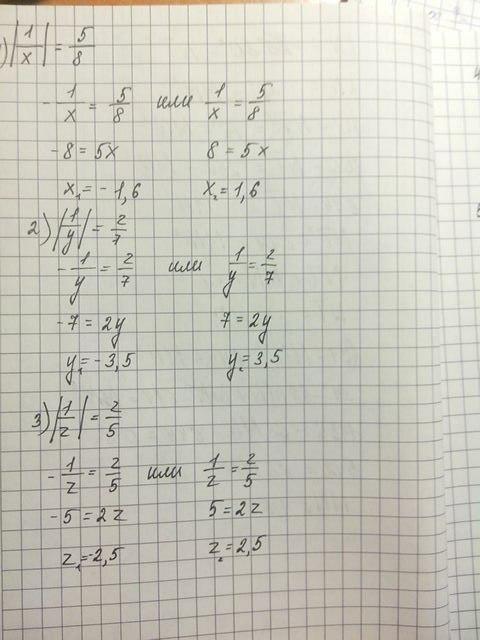 1) |1/x| = 5/8
-1/x = 5/8 или 1/x = 5/8
-8 = 5x 8 = 5x
x₁ = -1,6 x₂ = 1,6
2) |1/y| = 2/7
-1/y = 2/7 или 1/y = 2/7
-7 = 2y 7 = 2y
y₁ = -3,5 y₂ = 3,5
3) |1/z| = 2/5
-1/z = 2/5 или 1/z = 2/5
-5 = 2z 5 = 2z
z₁ = -2,5 z₂ = 2,5